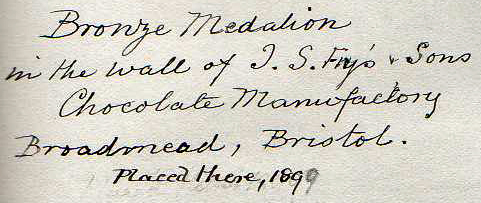 Bronze Medalion
in the wall of J. S. Fry's & Sons
Chocolate Manufactory
Broadmead, Bristol.
Placed there, 1899